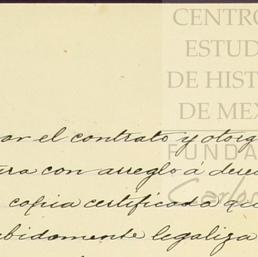 CENTRO
ESTUD
DE HIST
DE MEX
ar el contrato y otorg
ra con arreglo á dere
FUNDA
copia certificada que
bidamente legaliza